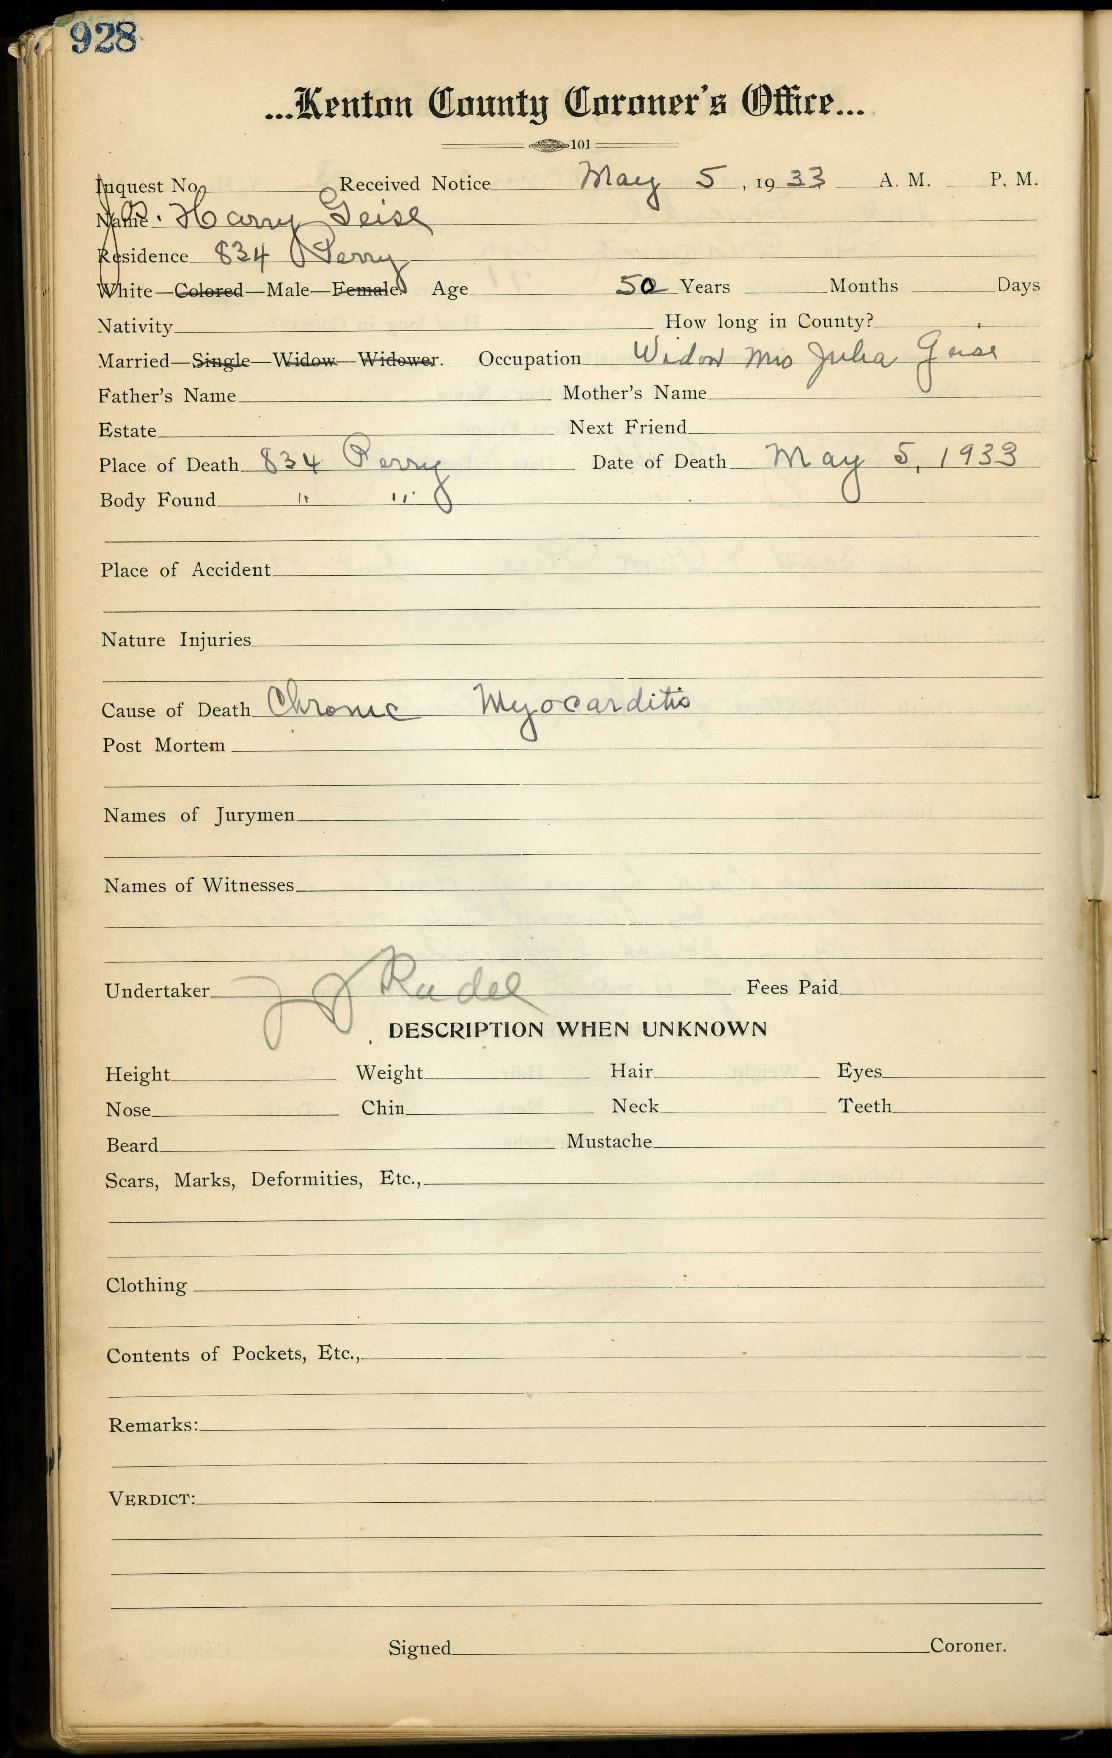 928
...Kenton County Coroner's Office...
101
Inquest No. Received Notice May 5, 1933 A. M. P. M.
Name Jos. Harry Geise
Residence 834 Perry
White—Colored—Male—Female Age 50 Years Months Days
Nativity How long in County?
Married—Single—Widow—Widower. Occupation Widow Mrs Julia Geise
Father's Name Mother's Name
Estate Next Friend
Place of Death 834 Perry Date of Death May 5, 1933
Body Found " "
Place of Accident
Nature Injuries
Cause of Death Chronic Myocarditis
Post Mortem
Names of Jurymen
Names of Witnesses
Undertaker J J Radel Fees Paid
DESCRIPTION WHEN UNKNOWN
Height Weight Hair Eyes
Nose Chin Neck Teeth
Beard Mustache
Scars, Marks, Deformities, Etc.,
Clothing
Contents of Pockets, Etc.,
Remarks:
VERDICT:
Signed Coroner.